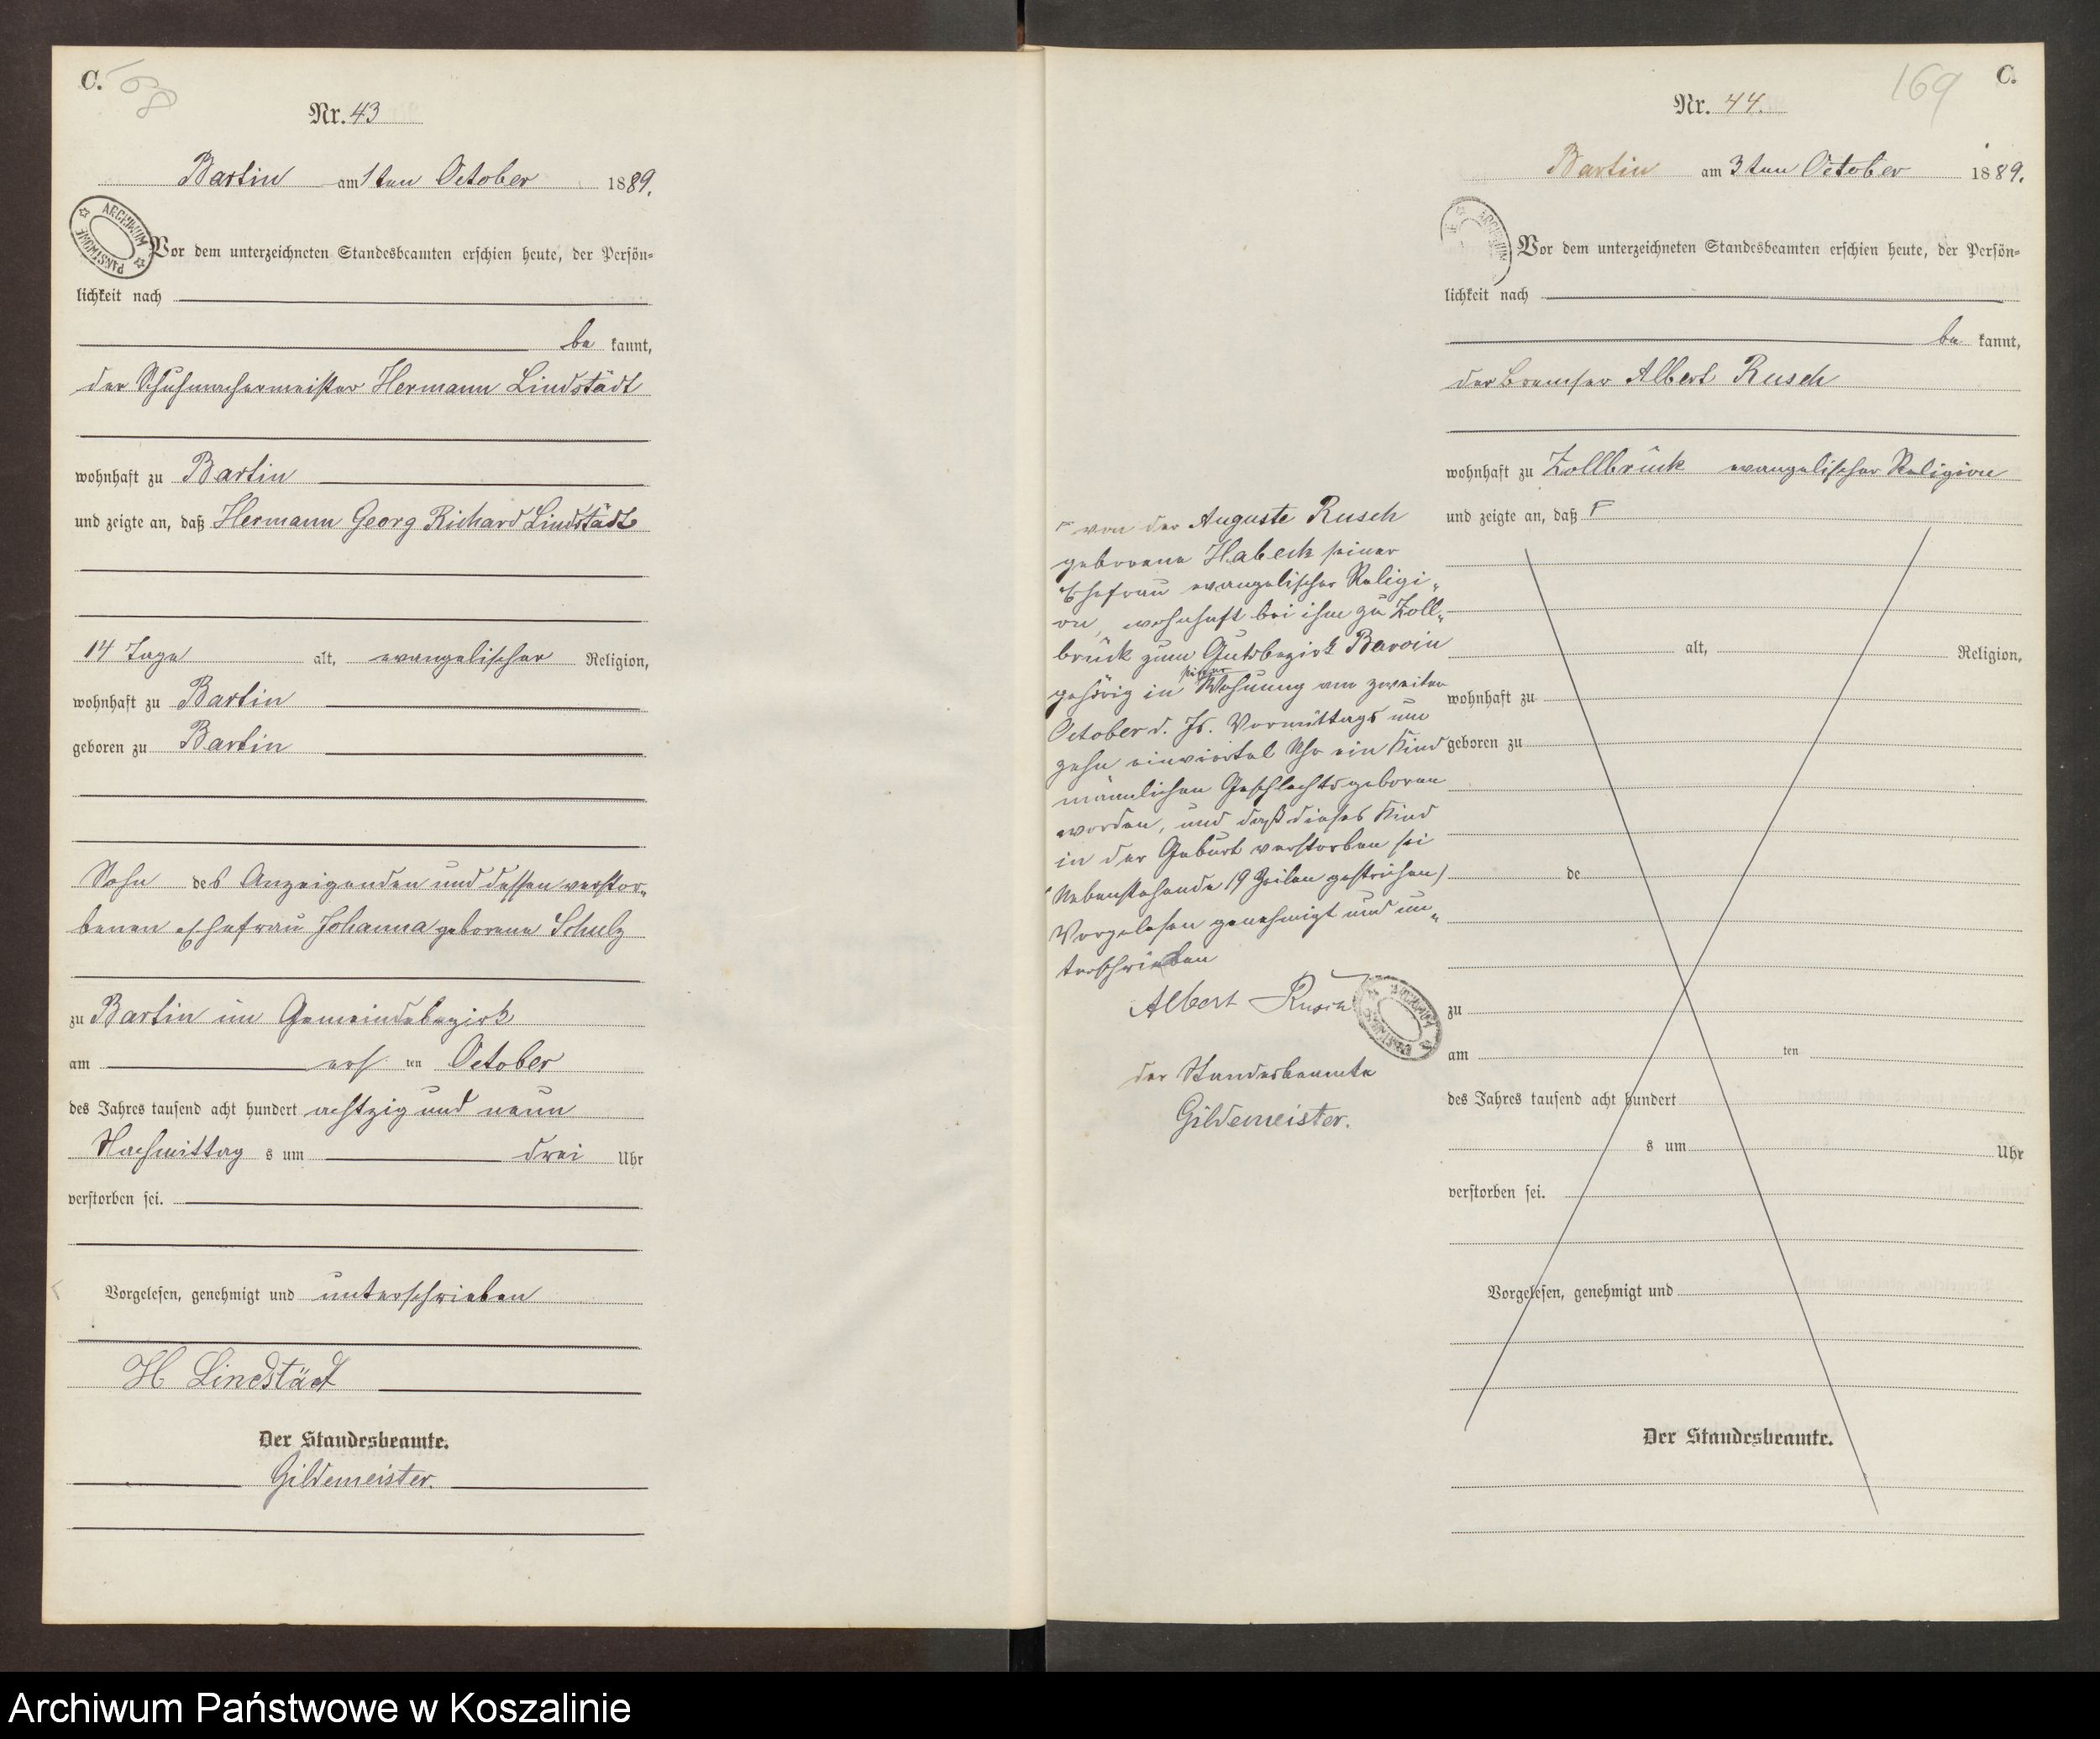 C.
Nr. 43
Bartin am 1ten October 1889.
ARCHIWUM PAŃSTWOWE
Vor dem unterzeichneten Standesbeamten erschien heute, der Persön=
lichkeit nach
be kannt,
der Schuhmachermeister Hermann Lindstädt
wohnhaft zu Bartin
und zeigte an, daß Hermann Georg Richard Lindstädt
14 Tage alt, evangelischer Religion,
wohnhaft zu Bartin
geboren zu Bartin
Sohn des Anzeigenden und dessen verstor-
benen Ehefrau Johanna geborene Schulz
zu Bartin im Gemeindebezirk
am ers ten October
des Jahres tausend acht hundert achtzig und neun
Nachmittag s um drei Uhr
verstorben sei.
Vorgelesen, genehmigt und unterschrieben
H Lindstädt
Der Standesbeamte.
Gildemeister.
169 C.
Nr. 44.
Bartin am 3ten October 1889.
ARCHIWUM
Vor dem unterzeichneten Standesbeamten erschien heute, der Persön=
lichkeit nach
be kannt,
der Bremser Albert Rusch
wohnhaft zu Zollbrück evangelischer Religion
und zeigte an, daß
von der Auguste Rusch
geborene Habeck seiner
Ehefrau evangelischer Religi-
on, wohnhaft bei ihm zu Zoll-
brück zum Gutsbezirk Barvin
gehörig in seiner Wohnung am zweiten
October d. Js. Vormittags um
zehn einviertel Uhr ein Kind
männlichen Geschlechts geboren
worden, und daß dieses Kind
in der Geburt verstorben sei
(Nebenstehende 19 Zeilen gestrichen)
Vorgelesen genehmigt und un-
terschrieben
Albert Rusch
der Standesbeamte
Gildemeister.
alt, Religion,
wohnhaft zu
geboren zu
de
zu
am ten
des Jahres tausend acht hundert
s um Uhr
verstorben sei.
Vorgelesen, genehmigt und
Der Standesbeamte.
Archiwum Państwowe w Koszalinie